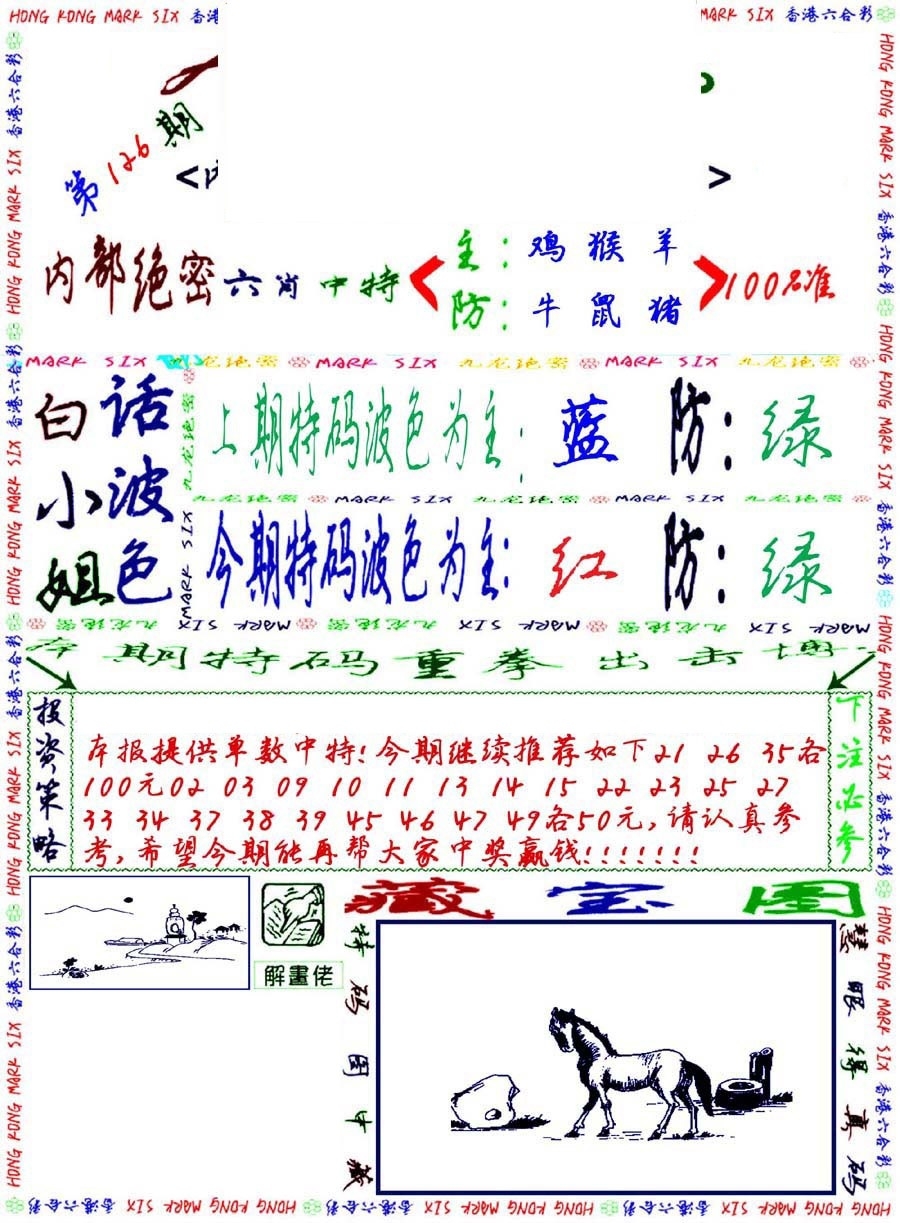 HONG KONG MARK SIX 香港六合彩
MARK SIX 香港六合彩
第126期
<
>
内部绝密六肖中特
主：鸡猴羊
防：牛鼠猪
100名准
MARK SIX 九龙绝密 MARK SIX 九龙绝密 MARK SIX 九龙绝密
白话
小波
姐色
上期特码波色为主：蓝 防：绿
九龙绝密 MARK SIX 九龙绝密 MARK SIX 九龙绝密
今期特码波色为主：红 防：绿
MARK SIX 九龙绝密 MARK SIX 九龙绝密 MARK SIX 九龙绝密
期特码重拳出击
投资策略
本报提供单数中特!今期继续推荐如下21 26 35各
100元02 03 09 10 11 13 14 15 22 23 25 27
33 34 37 38 39 45 46 47 49各50元,请认真参
考,希望今期能再帮大家中奖赢钱!!!!!!!
下注必参
解畫佬
藏宝图
特码图中藏
慧眼得真码
HONG KONG MARK SIX 香港六合彩